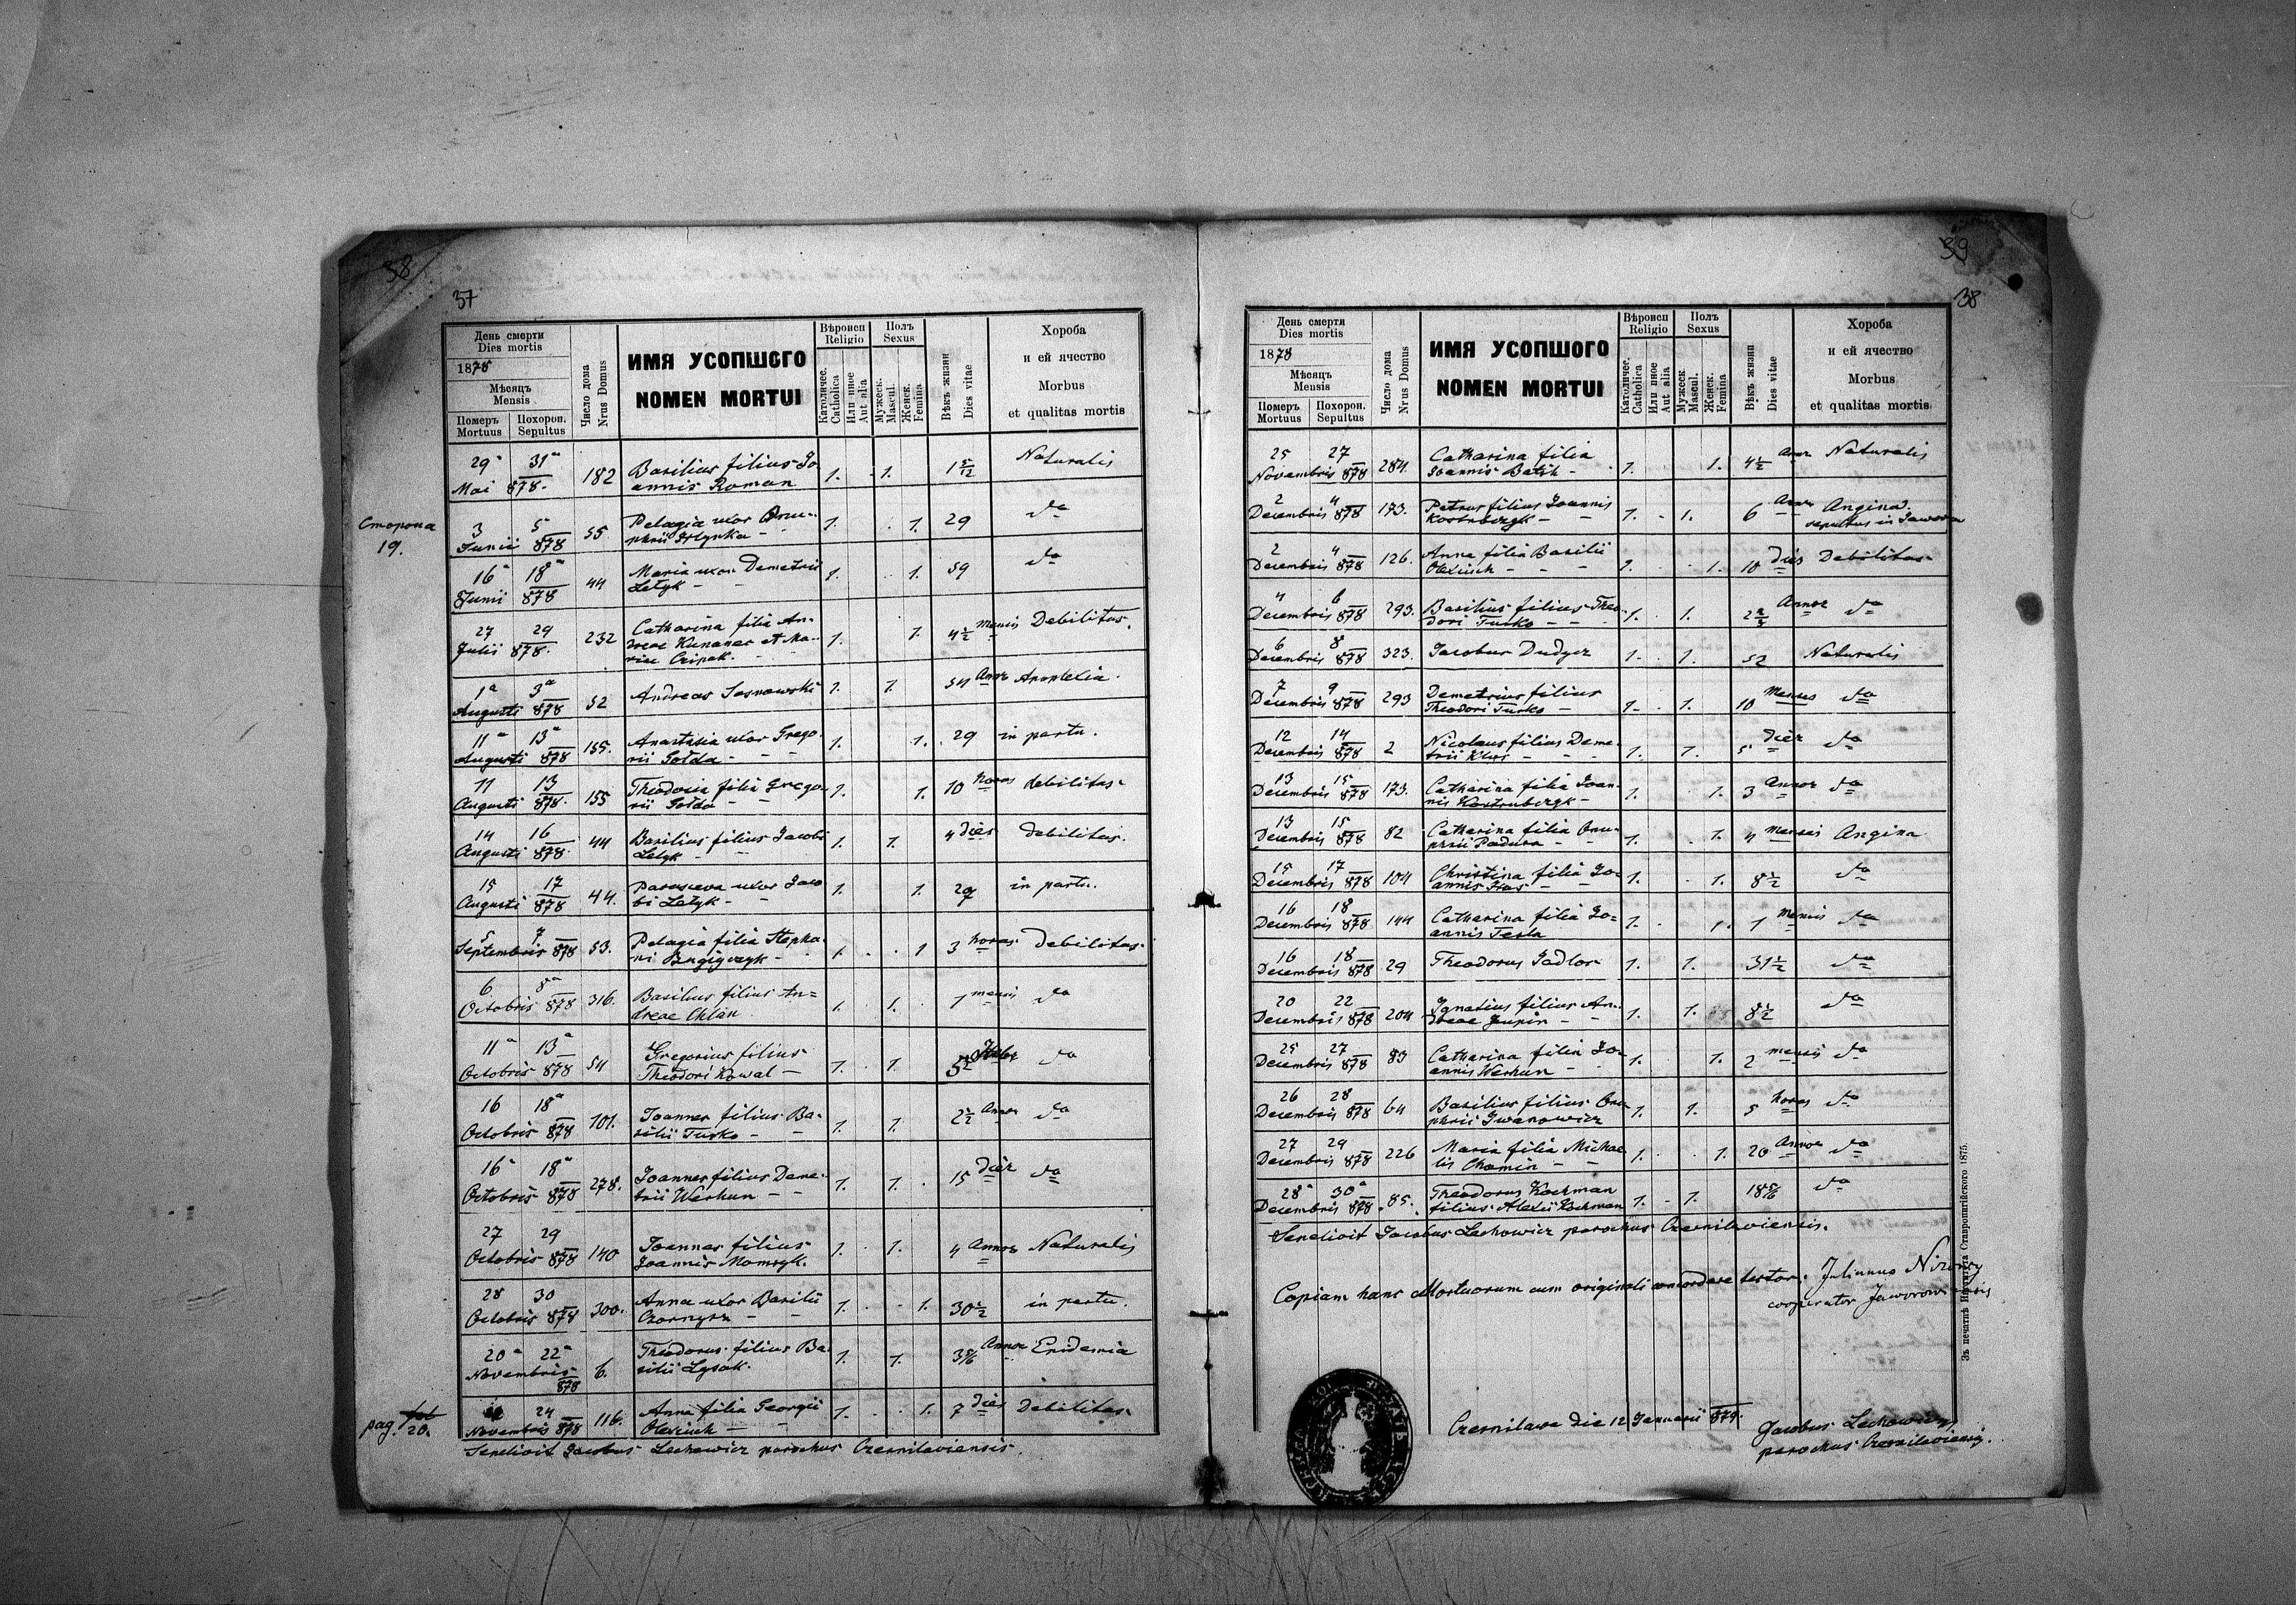 38
37
День смерти
Dies mortis
1878
Мѣсяцъ
Mensis
Померъ Похорон.
Mortuus Sepultus
Число дома
Nrus Domus
ИМЯ УСОПШОГО
NOMEN MORTUI
Вѣроисп
Religio
Католичес.
Catholica
Или иное
Aut alia
Полъ
Sexus
Мужеск.
Mascul.
Женск.
Femina
Вѣкъ жизни
Dies vitae
Хороба
и ей ячество
Morbus
et qualitas mortis
29 31 182 Basilius filius Jo- 1. 1. 1 5/12 Naturalis
Mai 878. annis Roman
Сторона
19.
3 5 55 Pelagia uxor Onu- 1. 1. 29 do
Junii 878 phrii
16 18 44 Maria uxor Demetrii 1. 1. 59 do
Junii 878 Letyk
27 29 232 Catharina filia An- 1. 1. 4½ mensis Debilitas.
Julii 878. dreae et Ma-
riae
1 3 52 Andreas Sosnowski 1. 1. 54 Annor Apoplexia.
Augusti 878
11 13 155. Anastasia uxor Grego- 1. 1. 29 in partu.
Augusti 878 rii Gołda
11 13 155 Theodosia filia Grego- 1. 1. 10 horas debilitas
Augusti 878. rii Gołda
14 16 44 Basilius filius Jacobi 1. 1. 4 dies debilitas.
Augusti 878. Letyk
15 17 44. Parasceva uxor Jaco 1. 1. 29 in partu.
Augusti 878 bi Letyk
5 7 53. Pelagia filia Stepha- 1. 1 3 horas. Debilitas
Septembris 878 ni
6 8 316. Basilius filius An= 1. 1. 1 mensis do
Octobris 878 dreae Chlan
11 13 54 Gregorius filius 1. 1. do
Octobris 878 Theodori Kowal
16 18 101. Joannes filius Ba- 1. 1. 2½ Annor do
Octobris 878 silii Turko
16 18 278. Joannes filius Deme- 1. 1. 15 dier do
Octobris 878 trii Werhun
27 29 140 Joannes filius 1. 1. 4 Annor Naturalis
Octobris 878 Joannis Momryk.
28 30 300. Anna uxor Basilii 1. 1. 30½ in partu.
Octobris 878 Czornysz
20 22 6. Theodorus filius Ba 1. 1. 3 5/6 Annor Epidemia
Novembris 878 silii Lysak.
pag. 20.
24 116. Anna filia Georgii 1. 1. 7 dies Debilitas
Novembris 878 Olexiuch
Sepelivit Jacobus Lechowicz parochus Czernilaviensis.
39
38
День смерти
Dies mortis
1878
Мѣсяцъ
Mensis
Померъ Похорон.
Mortuus Sepultus
Число дома
Nrus Domus
ИМЯ УСОПШОГО
NOMEN MORTUI
Вѣроисп
Religio
Католичес.
Catholica
Или иное
Aut alia
Полъ
Sexus
Мужеск
Mascul.
Женск.
Femina
Вѣкъ жизни
Dies vitae
Хороба
и ей ячество
Morbus
et qualitas mortis
25 27 284. Catharina filia 1. 1. 4½ Annor Naturalis
Novembris 878 Joannis Batih
2 4 173. Petrus filius Joannis 1. 1. 6 Annor Angina.
Decembris 878 sepultus in
2 4 126. Anna filia Basilii 1. 1. 10 dies Debilitas
Decembris 878 Olexiuch
4 6 293. Basilius filius Theo- 1. 1. Annor do
Decembris 878 dori Turko
6 8 323. Jacobus Dudycz 1. 1. 52 Naturalis
Decembris 878
7 9 293 Demetrius filius 1. 1. 10 Menses do
Decembris 878 Theodori Turko
12 14 2 Nicolaus filius Deme- 1. 1. 5 dier do
Decembris 878 trii
13 15 173. Catharina filia Joan- 1. 1. 3 Annor do
Decembris 878 nis
13 15 82 Catharina filia Onu- 1. 1. 4 mensis Angina
Decembris 878 phrii Padura
15 17 104 Christina filia Jo- 1. 1. 8½ do
Decembris 878 annis
16 18 144 Catharina filia Jo= 1. 1. 1 mensis do
Decembris 878 annis Tesla
16 18 29 Theodorus Jadlos 1. 1. 31½ do
Decembris 878
20 22 204 Ignatius filius An- 1. 1. 8½ do
Decembris 878 dreae
25 27 83 Catharina filia Jo- 1. 1. 2 mensis do
Decembris 878 annis Werhun
26 28 64 Basilius filius Onu- 1. 1. 5 horas do
Decembris 878 phrii Iwanowicz
27 29 226 Maria filia Michae 1. 1. 20 Annor do
Decembris 878 lis Chomin
28 30 85. Theodorus Kochman 1. 1. 18 5/6 do
Decembris 878 filius Alexii Kochman
Sepelivit Jacobus Lechowicz parochus Czernilaviensis.
Copiam hanc Mortuorum cum originali concordare testor. Julianus
cooperator
Czernilawa die 12 Januarii 879.
Jacobus Lechowicz
parochus Czernilaviensis.
Зъ печатнѣ Института Ставропигійского 1875.